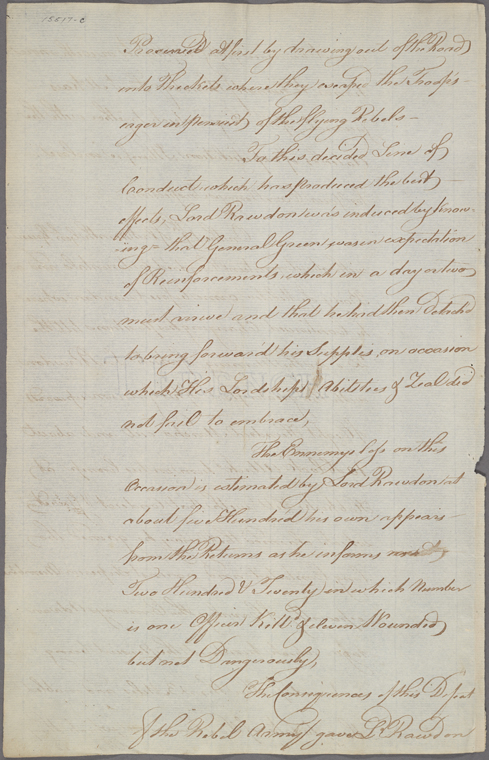 15517-c
Preserved at first by drawing out of the Road
into Thickets where they escaped the Troops
eager in Persuit of the flying Rebels —
To this decided Line of
Conduct which has produced the best
effects, Lord Rawdon was induced by know=
ing that General Green was in expectation
of Reinforcements which in a day or two
must arrive and that he had then Detach'd
to bring forward his Supplies, an occasion
which His Lordships Abilities & Zeal did
not fail to embrace,
The Ennemys loss on this
Occasion is estimated by Lord Rawdon at
about five Hundred his own appears
from the Returns as he informs
Two Hundred & Twenty in which Number
is one Officer Kill'd & eleven Wounded,
but not Dangerously,
The Consequences of this Defeat
of the Rebel Army gave Ld Rawdon